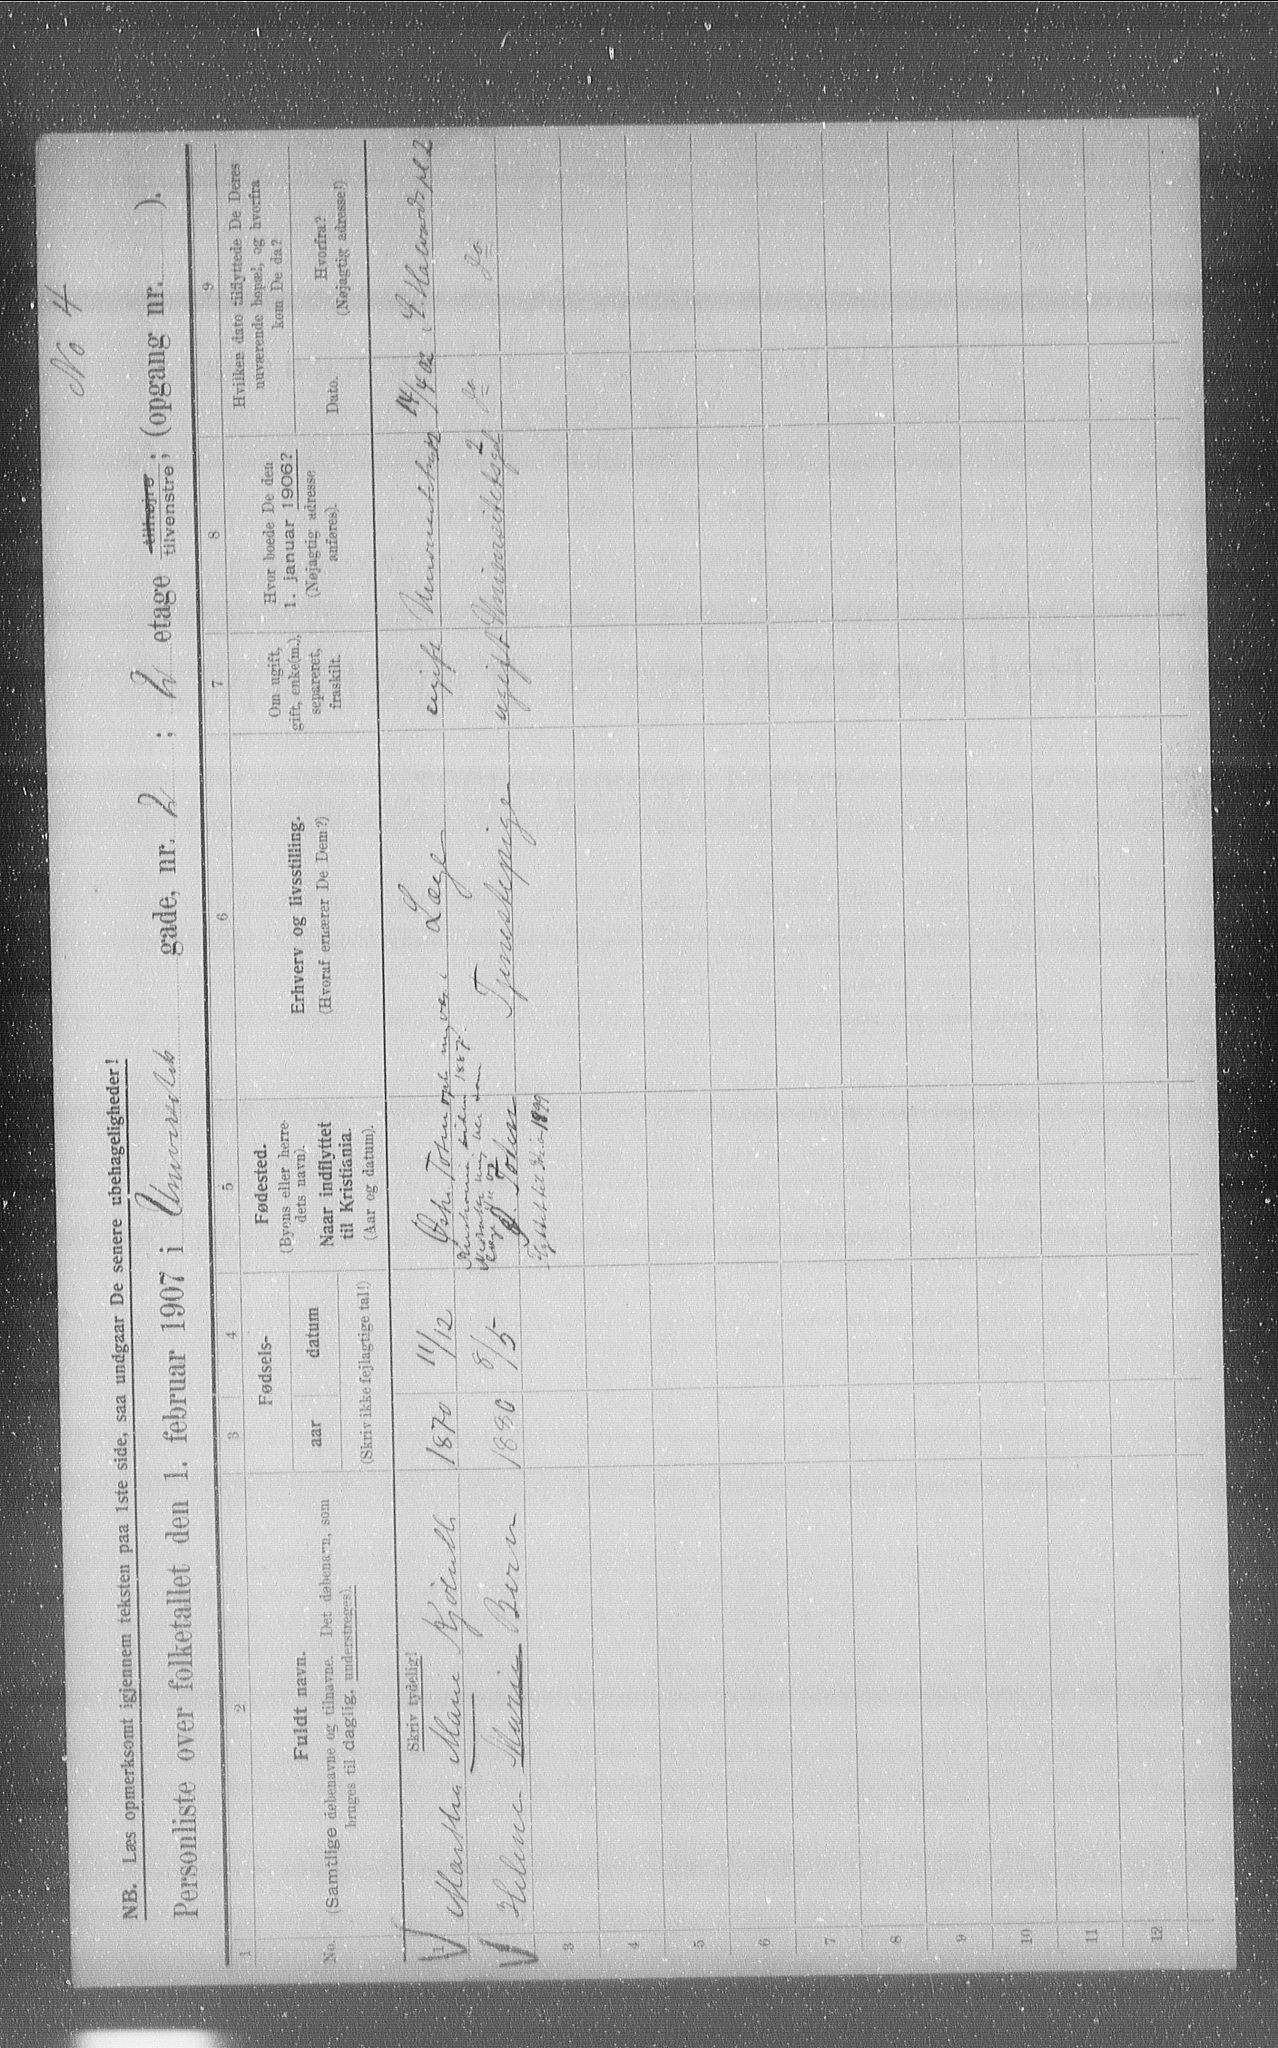 No 4
NB. Læs opmerksomt igjennem teksten paa 1ste side, saa undgaar De senere ubehageligheder!
Personliste over folketallet den 1. februar 1907 i Universitets gade, nr. 2 ; 2 etage tilhøjre, tilvenstre; (opgang nr. ).
1 2 3 4 5 6 7 8 9
No.
Fuldt navn.
(Samtlige døbenavne og tilnavne. Det døbenavn, som
bruges til daglig, understreges).
Fødsels-
aar datum
(Skriv ikke fejlagtige tal!)
Fødested.
(Byens eller herre-
dets navn).
Naar indflyttet
til Kristiania.
(Aar og datum).
Erhverv og livsstilling.
(Hvoraf ernærer De Dem?)
Om ugift,
gift, enke(m.),
separeret,
fraskilt.
Hvor boede De den
1. januar 1906?
(Nøjagtig adresse
anføres).
Hvilken dato tilflyttede De Deres
nuværende bopæl, og hvorfra
kom De da?
Dato.
Hvorfra?
(Nøjagtig adresse!)
Skriv tydelig!
1 Martha Marie 1870 11/12 Læge ugift 14/4 02
Kristiania siden 1887.
Helene Marie 1880 8/5 Ø. Toten Tjenestepige ugift Universitetsgd 2 do do
1899
3
4
5
6
7
8
9
10
11
12